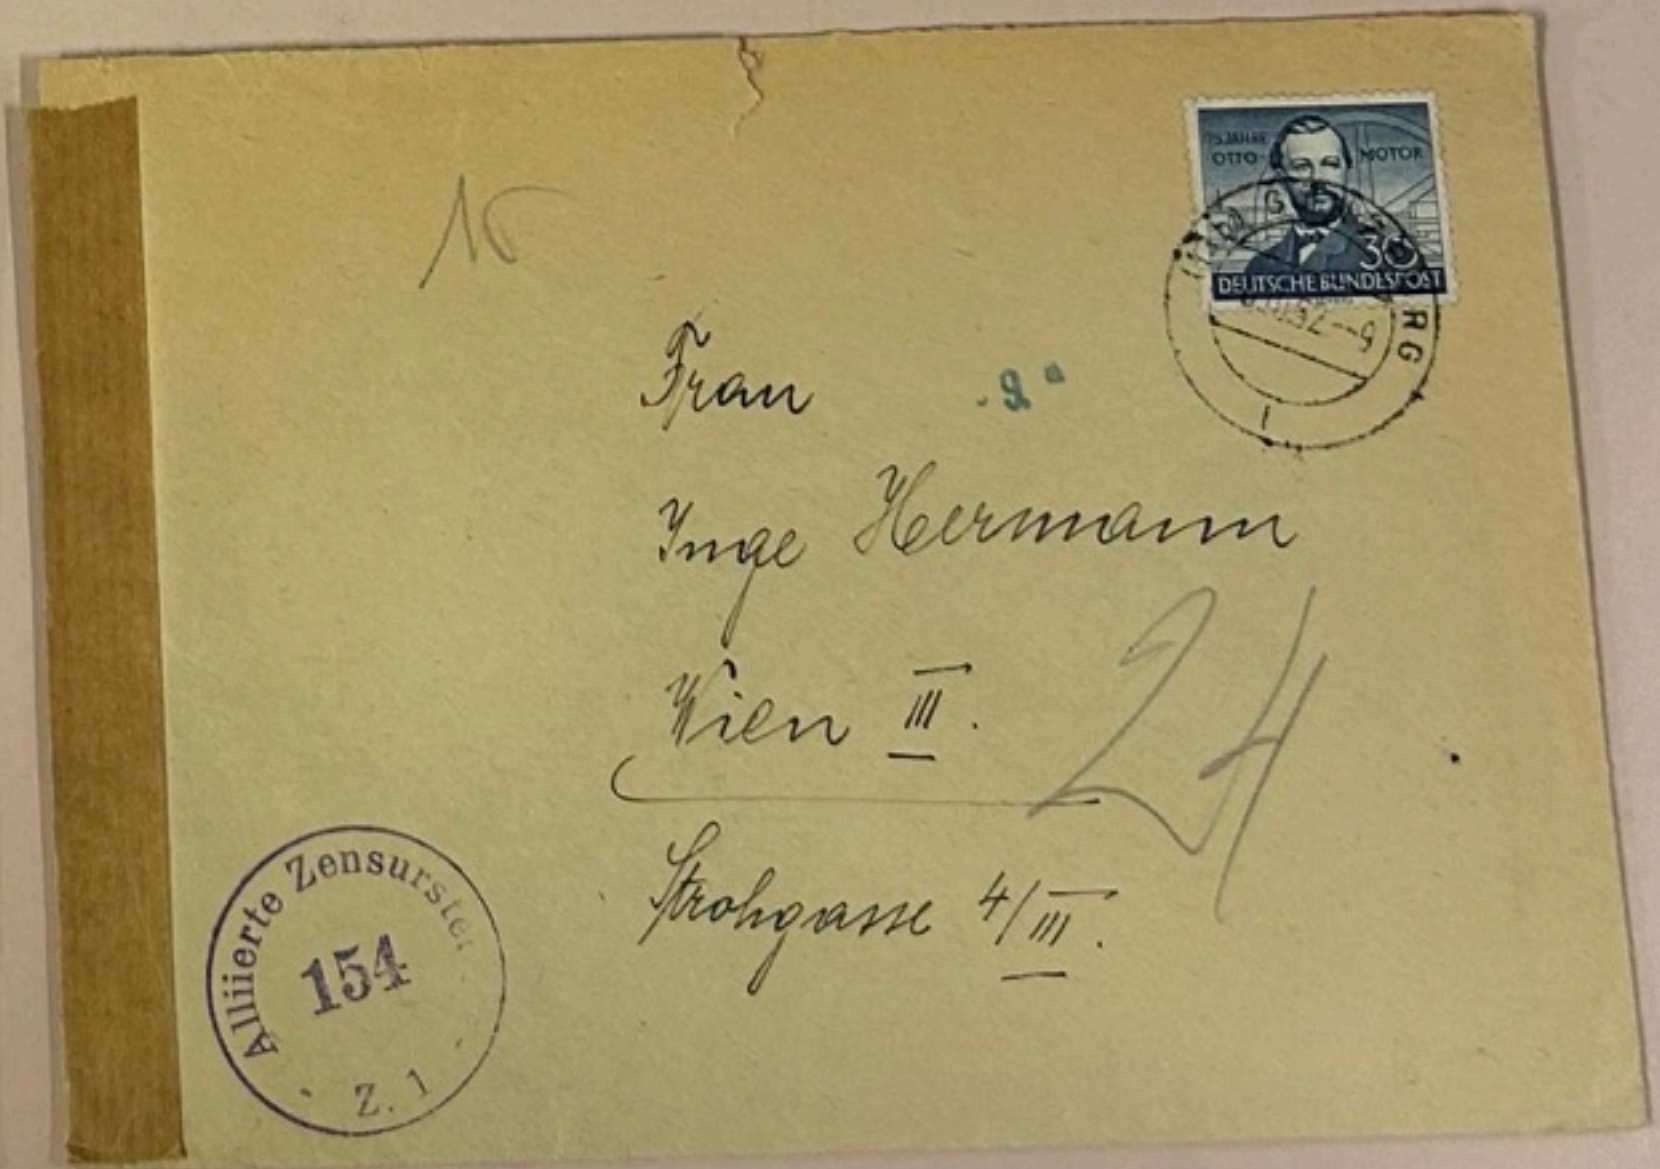 75 JAHRE
OTTO- MOTOR
30
DEUTSCHE BUNDESPOST
15
Frau
Inge Hermann
Wien III.
24
Strohgasse 4/III.
Alliierte Zensurstelle
154
Z. 1